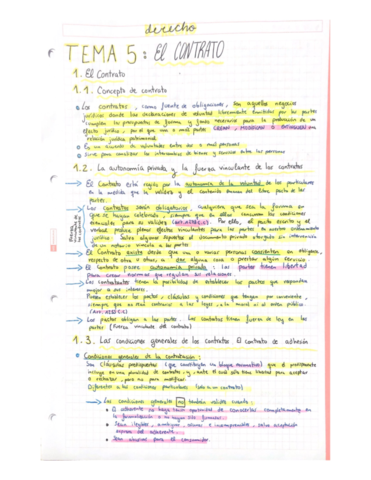 derecho
TEMA 5: EL CONTRATO
1. El Contrato
1.1. Concepto de contrato
Los contratos, como fuente de obligaciones, son aquellos negocios
jurídicos donde las declaraciones de voluntad libremente emitidas por las partes
cumplen los presupuestos de forma y fondo necesarios para la producción de un
efecto jurídico, por el que una o más partes CREAN, MODIFICAN O EXTINGUEN una
relación jurídica patrimonial
Es un acuerdo de voluntades entre dos o más personas
Sirve para canalizar los intercambios de bienes y servicios entre las personas
1.2. La autonomía privada y la fuerza vinculante de los contratos
→ El Contrato está regido por la autonomía de la voluntad de los particulares
en la medida que la validez y el contenido emanan del libre pacto a las
partes.
→ Los contratos serán obligatorios, cualquiera que sea la forma en
que se hayan celebrado, siempre que en ellos concurran las condiciones
esenciales para su validez (art. 1278 C.c). Por ello, el pacto escrito y el
verbal produce plenos efectos vinculantes para las partes en nuestro ordenamiento
jurídico.
de un notario vincula a las partes.
→ El Contrato existe desde que una o varias personas consienten en obligarse,
respecto de otra u otras, a dar alguna cosa o prestar algún servicio
→ El Contrato posee autonomía privada: las partes tienen libertad
para crear normas que regulan sus relaciones.
→ Los contratantes tienen la posibilidad de establecer los pactos que respondan
mejor a sus intereses.
Pueden establecer los pactos, cláusulas y condiciones que tengan por conveniente,
siempre que no sean contrarios a las leyes, a la moral ni al orden público
(art. 1255 C.c)
→ Los pactos obligan a las partes. Los contratos tienen fuerza de ley en las
partes (Fuerza vinculante del contrato)
1.3. Las condiciones generales de los contratos. El contrato de adhesión
Condiciones generales de la contratación:
Son cláusulas predispuestas (que constituyen un bloque normativo) que el predisponente
incluye en una pluralidad de contratos y, ante el cual sólo tiene libertad para aceptar
o rechazar, pero no para modificar.
Diferentes a las condiciones particulares (solo a un contrato)
→ Las condiciones generales no tendrán validez cuando:
El adherente no haya tenido oportunidad de conocerlas completamente en
la formalización o no hayan sido firmadas.
Sean ilegibles, ambiguas, oscuras e incomprensibles, salvo aceptación
expresa del adherente.
Sean abusivas para el consumidor